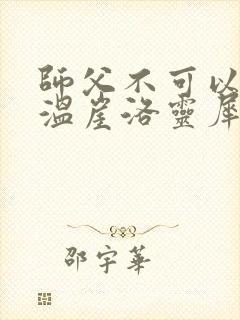 師父不可以
溫崖洛靈犀
邵宇華